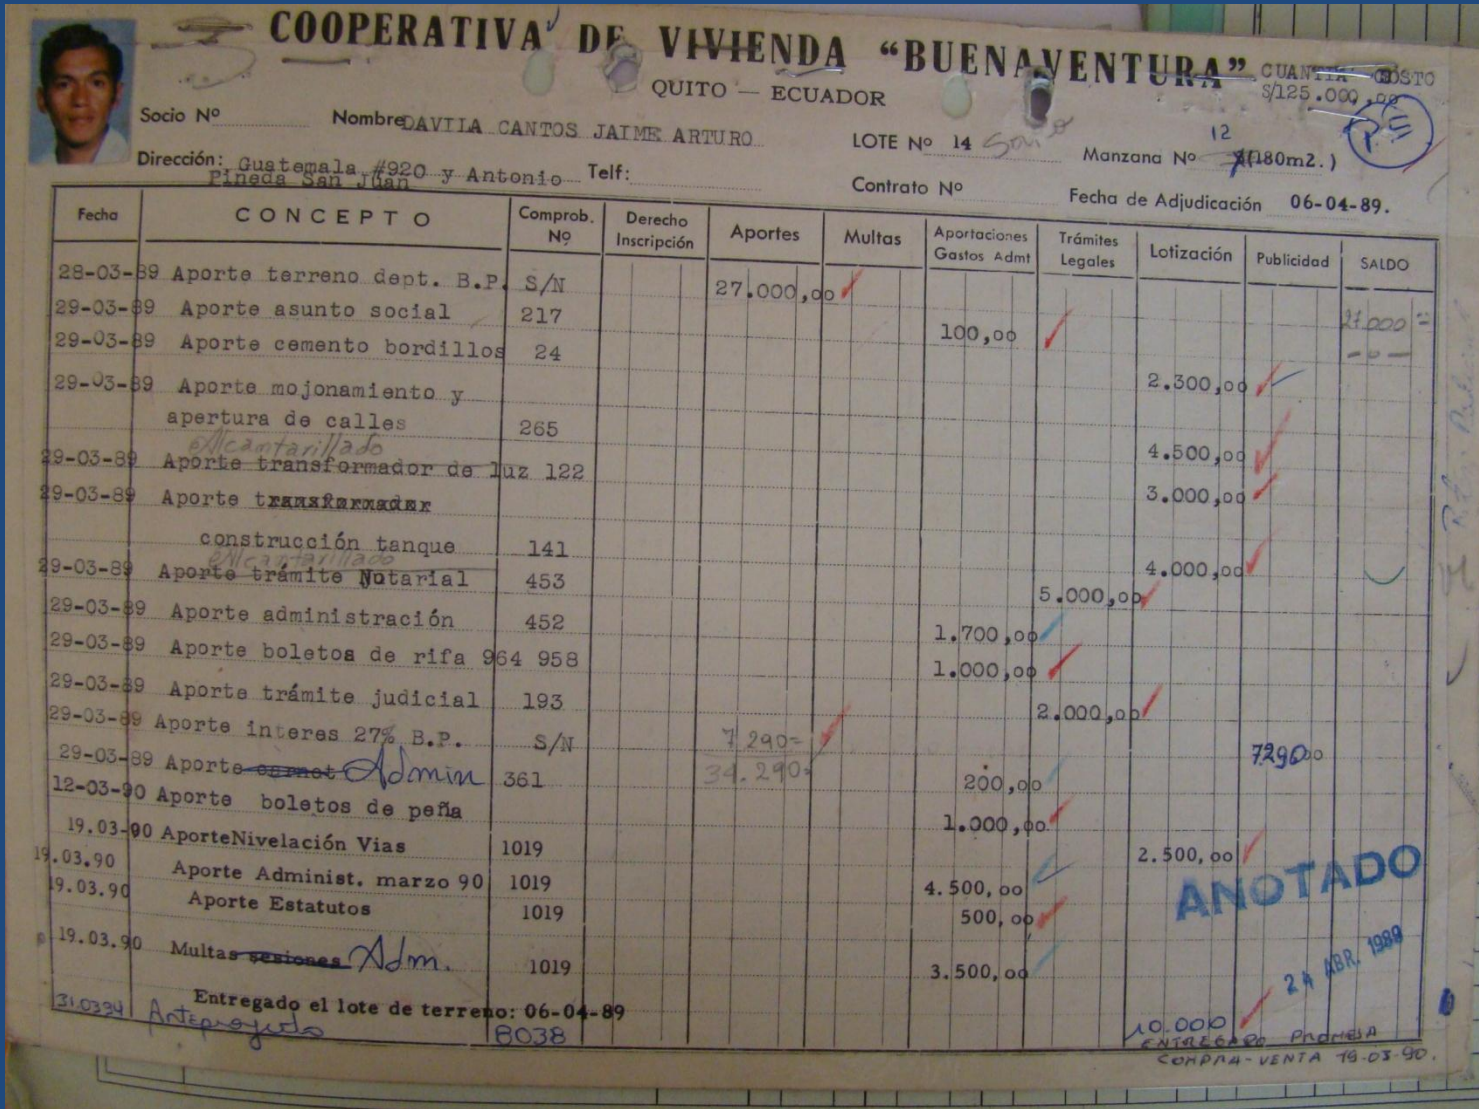 COOPERATIVA DE VIVIENDA “BUENAVENTURA”
QUITO — ECUADOR
CUANTIA COSTO
S/125.000,00
Socio Nº Nombre DAVILA CANTOS JAIME ARTURO LOTE Nº 14 12
Manzana Nº (180m2.)
Dirección: Guatemala #920 y Antonio Telf:
Pineda San Juan
Contrato Nº Fecha de Adjudicación 06-04-89.
Fecha CONCEPTO Comprob. Nº Derecho Inscripción Aportes Multas Aportaciones Gastos Admt Trámites Legales Lotización Publicidad SALDO
28-03-89 Aporte terreno dept. B.P. S/N 27.000,00
29-03-89 Aporte asunto social 217 100,00 27.000=
29-03-89 Aporte cemento bordillos 24 2.300,00 -o-
29-03-89 Aporte mojonamiento y
apertura de calles 265 4.500,00
Alcantarillado
29-03-89 Aporte transformador de luz 122 3.000,00
29-03-89 Aporte transformador
construcción tanque 141 4.000,00
Alcantarillado
29-03-89 Aporte trámite Notarial 453 5.000,00
29-03-89 Aporte administración 452 1.700,00
29-03-89 Aporte boletos de rifa 964 958 1.000,00
29-03-89 Aporte trámite judicial 193 2.000,00
29-03-89 Aporte interes 27% B.P. S/N 7.290= 729000
34.290=
29-03-89 Aporte carnet Admin 361 200,00
12-03-90 Aporte boletos de peña 1.000,00
19.03-90 Aporte Nivelación Vias 1019 2.500,00
19.03.90 Aporte Administ. marzo 90 1019 4.500,00
19.03.90 Aporte Estatutos 1019 500,00
ANOTADO
19.03.90 Multas sesiones Adm. 1019 3.500,00
24 ABR. 1989
Entregado el lote de terreno: 06-04-89
31.0394 Anteproyecto 8038 10.000
ENTREGADO PROMESA
COMPRA-VENTA 19-03-90.